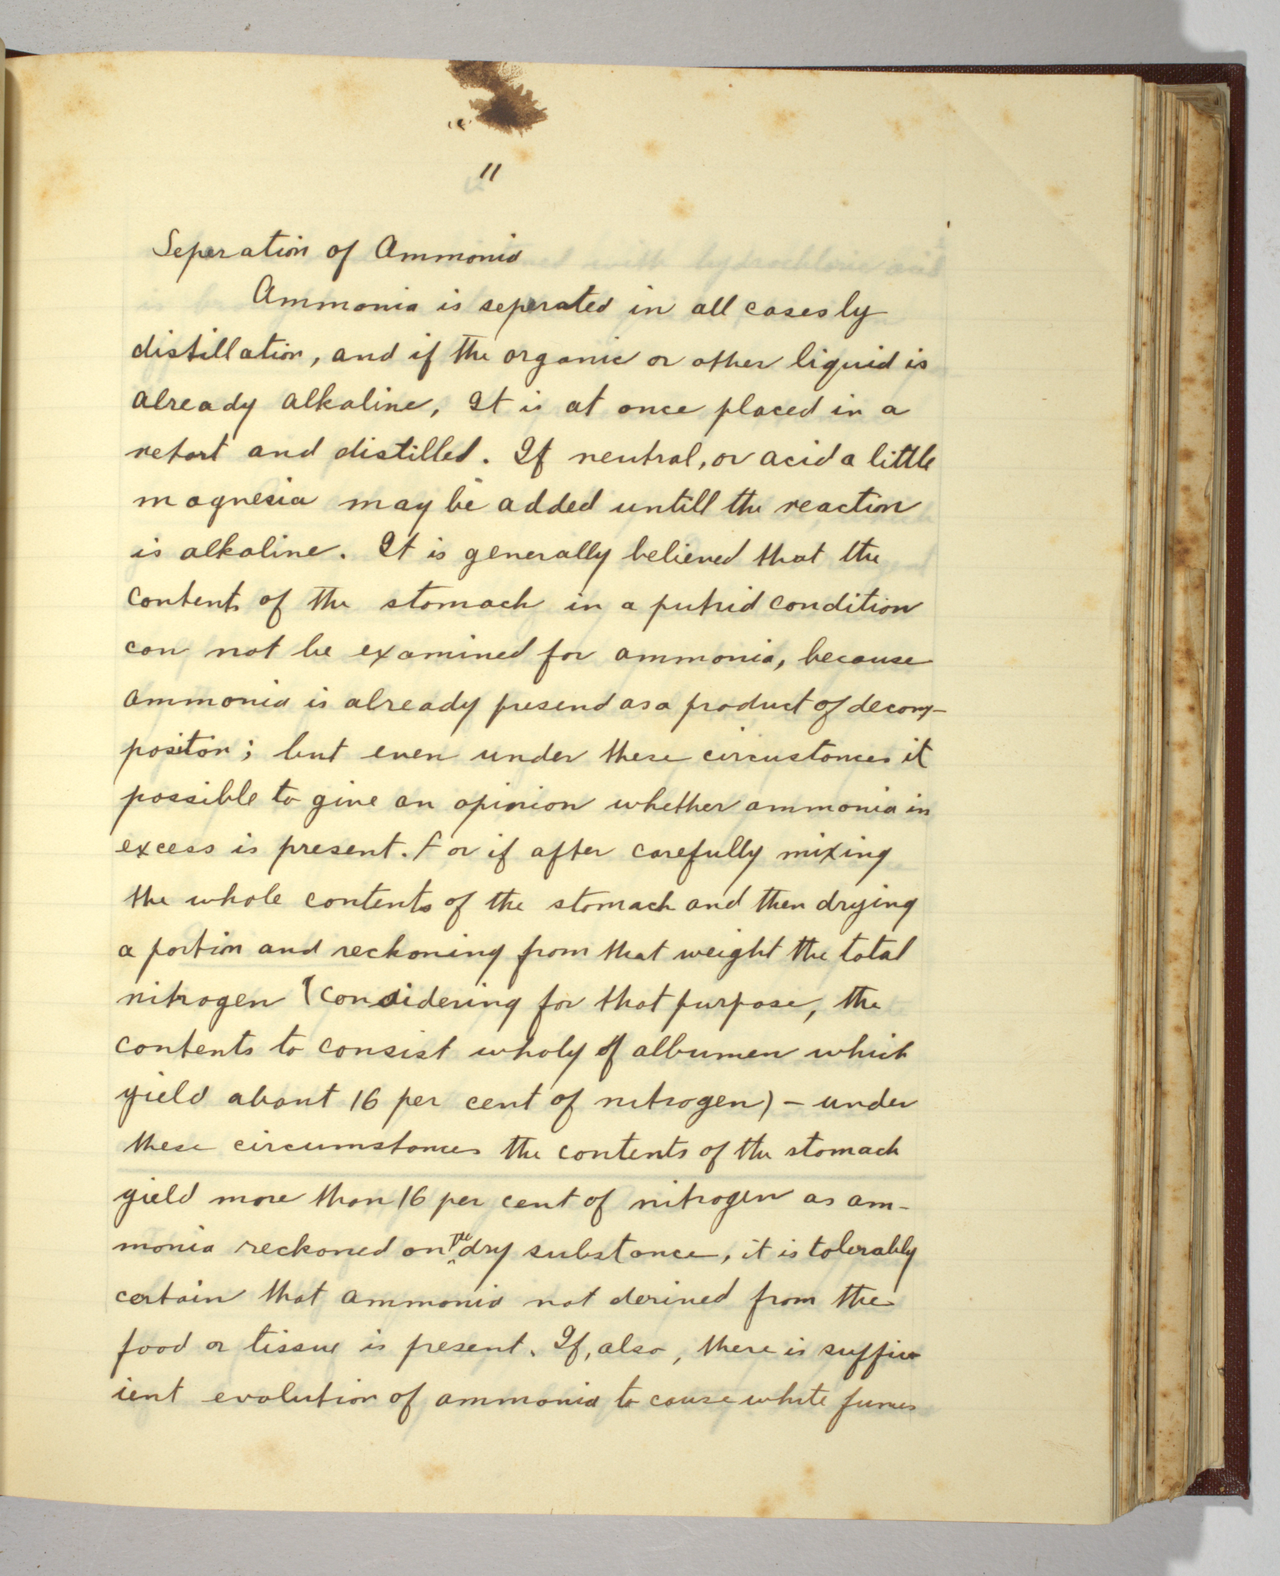 11
Seperation of Ammonia
Ammonia is seperated in all cases by
distillation, and if the organic or other liquid is
already alkaline, It is at once placed in a
retort and distilled. If neutral, or acid a little
magnesia may be added untill the reaction
is alkaline. It is generally believed that the
contents of the stomach in a putrid condition
can not be examined for ammonia, because
ammonia is already presend as a product of decom-
positon; but even under these circustances it
possible to give an opinion whether ammonia in
excess is present. For if after carefully mixing
the whole contents of the stomach and then drying
a portion and reckoning from that weight the total
nitrogen (considering for that purpose, the
contents to consist wholy of albumen which
yield about 16 per cent of nitrogen) – under
these circumstances the contents of the stomach
yield more than 16 per cent of nitrogen as am-
monia reckoned on the dry substance, it is tolerably
certain that ammonia not derived from the
food or tissue is present. If, also, there is suffic
ient evolution of ammonia to cause white fumes